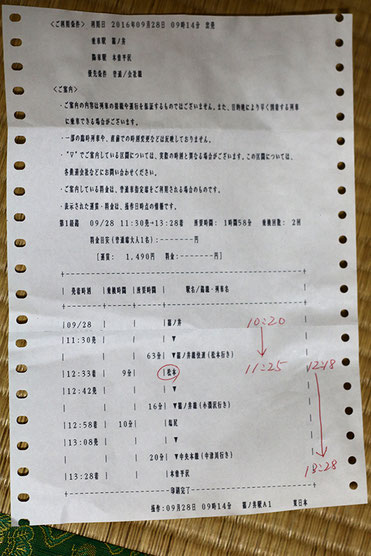 <ご利用条件> 利用日 2016年09月28日 09時14分 出発
乗車駅 篠ノ井
降車駅 木曽平沢
優先条件 普通/会社線
<ご案内>
・ご案内の内容は列車の接続や運行を保証するものではございません。また、目的地により早く到着する列車
に乗車できる場合がございます。
・一部の臨時列車や、直前での時刻変更などは反映しておりません。
・"▽"でご案内している区間については、実際の時刻と異なる場合がございます。この区間については、
各鉄道会社などにお問い合わせください。
・ご案内している料金は、普通車指定席をご利用される場合のものです。
・表示された運賃・料金は、操作日時点の情報です。
第1経路 09/28 11:30発→13:28着 所要時間: 1時間58分 乗換回数: 2回
料金目安(普通席大人1名): -------円
[運賃: 1,490円 料金: -------円]
|発着時刻 |乗換時間|所要時間| 駅名/路線・列車名
|09/28 | | |篠ノ井 10:20
|11:30発 | | | ▼
| | | 63分|▼篠ノ井線快速(松本行き)
|12:33着 | 9分| |松本 11:25 12:18
|12:42発 | | | ▼
| | | 16分|▼篠ノ井線(小淵沢行き)
|12:58着 | 10分| |塩尻
|13:08発 | | | ▼
| | | 20分|▼中央本線(中津川行き)
|13:28着 | | |木曽平沢 13:28
印刷完了
操作:09月28日 09時14分 篠ノ井駅A1 東日本